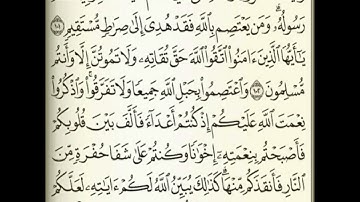 رَسُولُهُۥۗ وَمَن يَعْتَصِم بِٱللَّهِ فَقَدْ هُدِىَ إِلَىٰ صِرَٰطٍ مُّسْتَقِيمٍ ١٠١
يَٰٓأَيُّهَا ٱلَّذِينَ ءَامَنُوا۟ ٱتَّقُوا۟ ٱللَّهَ حَقَّ تُقَاتِهِۦ وَلَا تَمُوتُنَّ إِلَّا وَأَنتُم
مُّسْلِمُونَ ١٠٢ وَٱعْتَصِمُوا۟ بِحَبْلِ ٱللَّهِ جَمِيعًا وَلَا تَفَرَّقُوا۟ۚ وَٱذْكُرُوا۟
نِعْمَتَ ٱللَّهِ عَلَيْكُمْ إِذْ كُنتُمْ أَعْدَآءً فَأَلَّفَ بَيْنَ قُلُوبِكُمْ
فَأَصْبَحْتُم بِنِعْمَتِهِۦٓ إِخْوَٰنًا وَكُنتُمْ عَلَىٰ شَفَا حُفْرَةٍ مِّنَ
ٱلنَّارِ فَأَنقَذَكُم مِّنْهَاۗ كَذَٰلِكَ يُبَيِّنُ ٱللَّهُ لَكُمْ ءَايَٰتِهِۦ لَعَلَّكُمْ